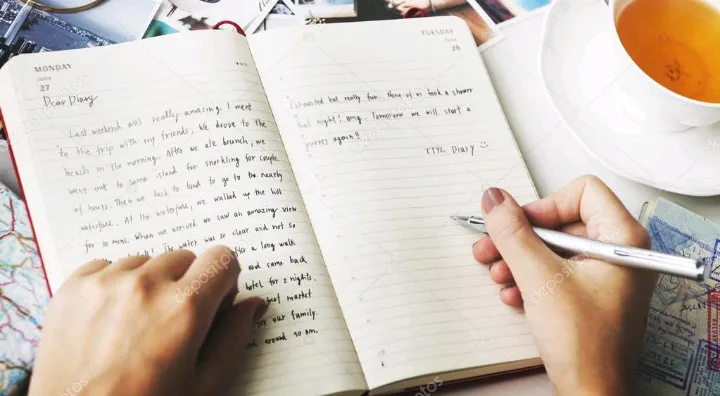 MONDAY
June
27
Dear Diary
Last weekend was really amazing. I went
to the trip with my friends, We drove to the
beach in the morning. After we ate brunch, we
went out to some island for snorkling for couple
of hours. Then we back to land to go to the nearly
waterfall. At the waterfall, we walked up the hill
for 30 mins. When we arrived we saw an amazing view
The water was so clear and not so
after a long walk
and came back
hotel for 2 nights.
market
for our family.
around 10 pm.
TUESDAY
June
28
Exhausted but really fun. None of us took a shower
last night! omg. Tomorrow we will start a
journey again!!
TTYL Diary
depositphotos